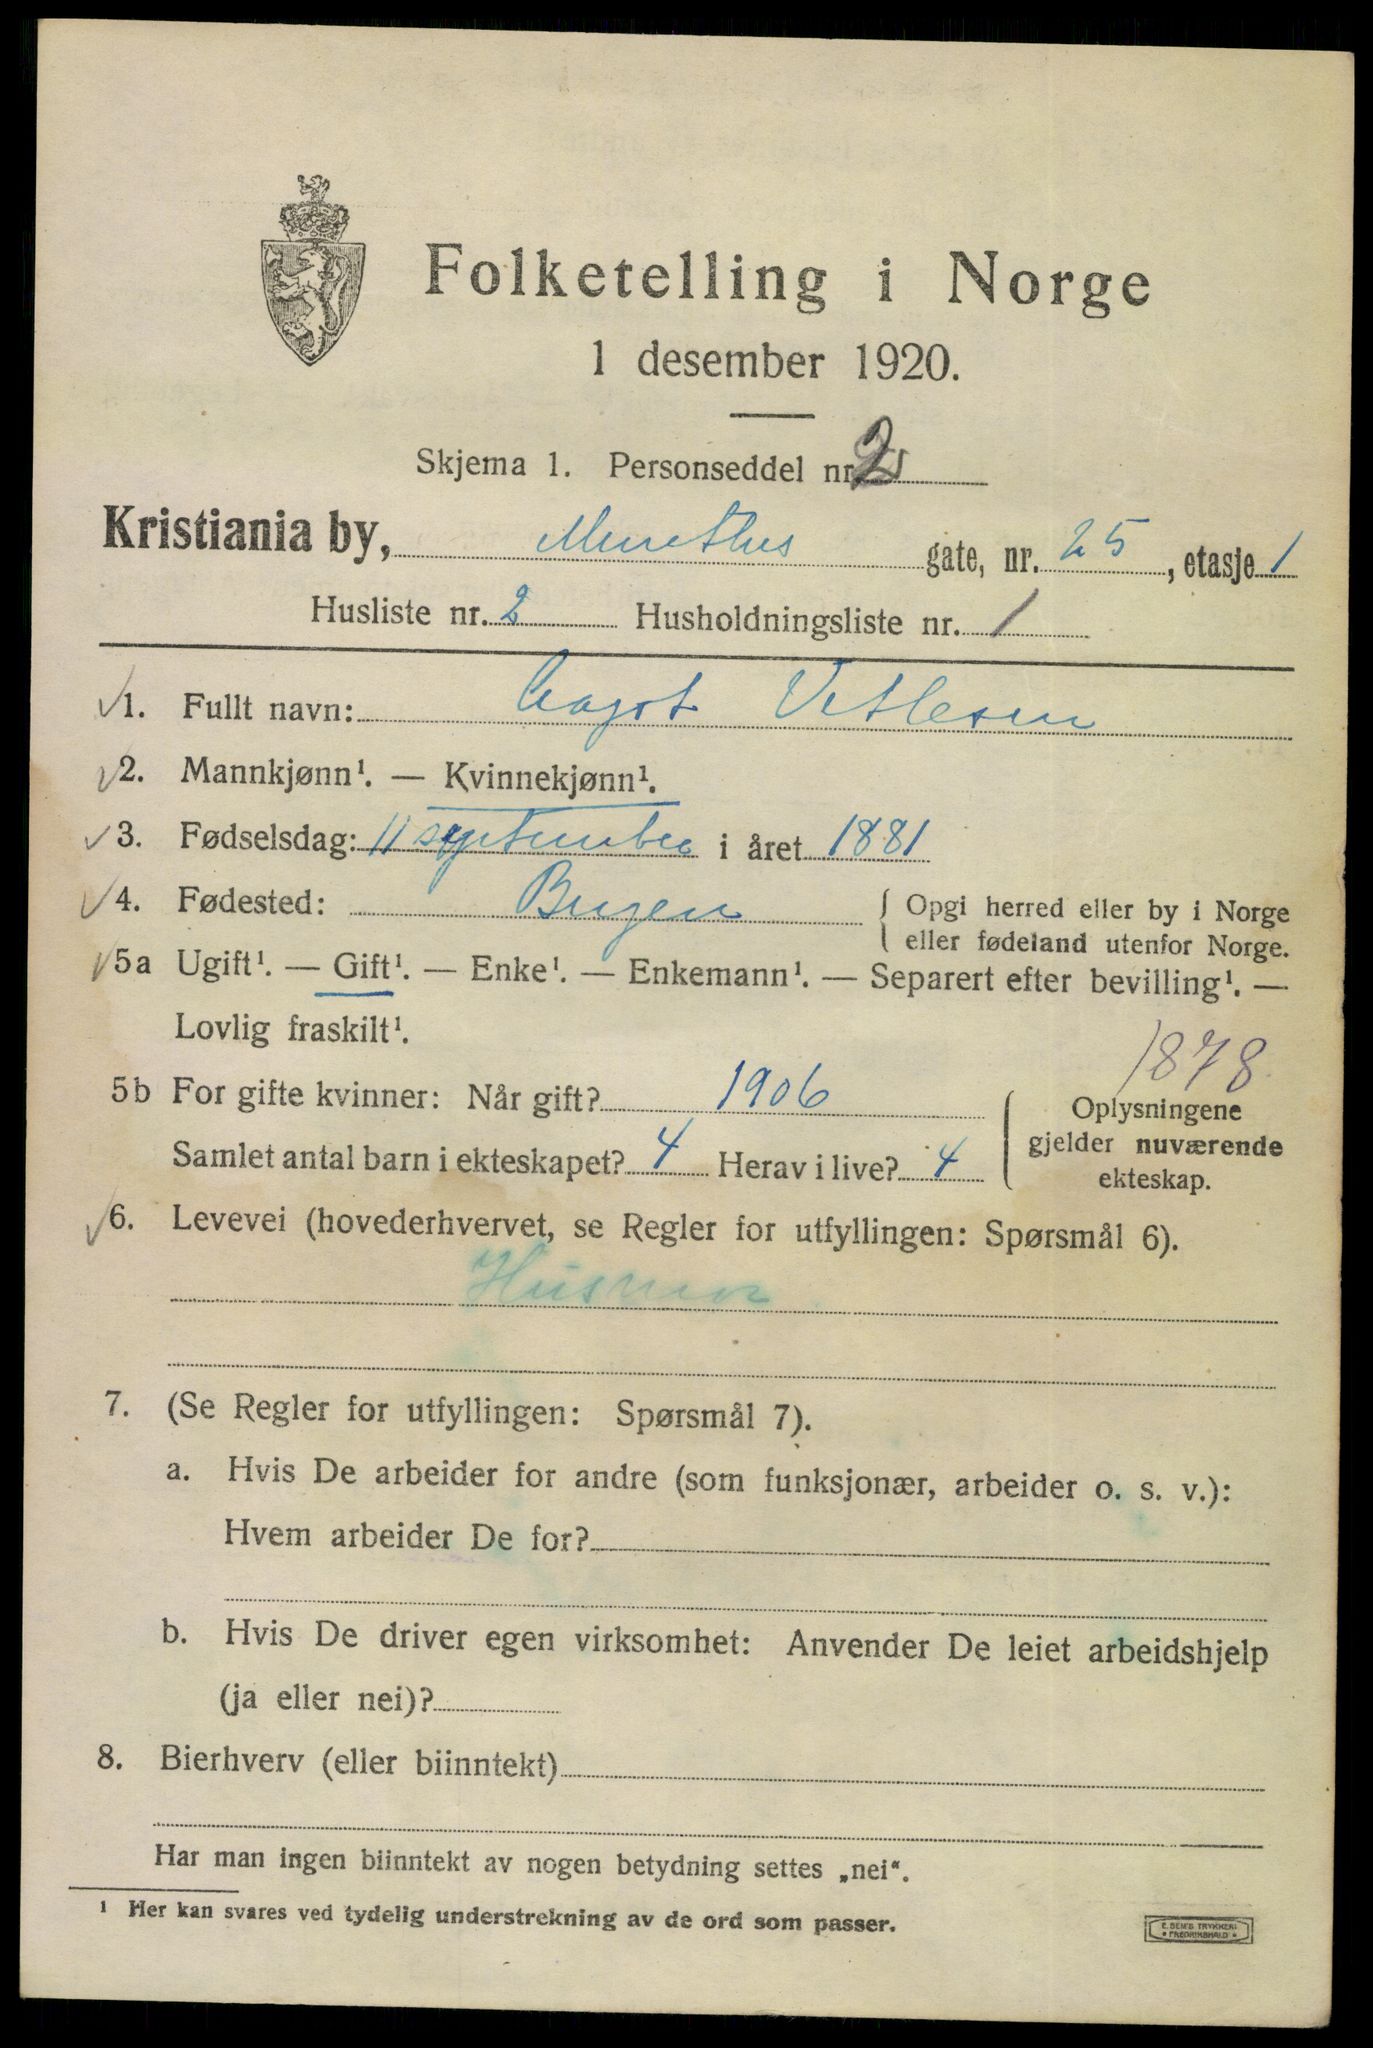 Folketelling i Norge
1 desember 1920.
Skjema 1. Personseddel nr. 2
Kristiania by, Munthes gate, nr. 25, etasje 1
Husliste nr. 2 Husholdningsliste nr. 1
1. Fullt navn: Aagot Vetlesen
2. Mannkjønn¹. — Kvinnekjønn¹.
3. Fødselsdag: 11 september i året 1881
4. Fødested: Bergen { Opgi herred eller by i Norge
eller fødeland utenfor Norge.
5a Ugift¹. — Gift¹. — Enke¹. — Enkemann¹. — Separert efter bevilling¹. —
Lovlig fraskilt¹.
1878
5b For gifte kvinner: Når gift? 1906
Samlet antal barn i ekteskapet? 4 Herav i live? 4
{ Oplysningene
gjelder nuværende
ekteskap.
6. Levevei (hovederhvervet, se Regler for utfyllingen: Spørsmål 6).
Husmor
7. (Se Regler for utfyllingen: Spørsmål 7).
a. Hvis De arbeider for andre (som funksjonær, arbeider o. s. v.):
Hvem arbeider De for?
b. Hvis De driver egen virksomhet: Anvender De leiet arbeidshjelp
(ja eller nei)?
8. Bierhverv (eller biinntekt)
Har man ingen biinntekt av nogen betydning settes „nei“.
¹ Her kan svares ved tydelig understrekning av de ord som passer.
E. SEM'S TRYKKERI
* FREDRIKSHALD *